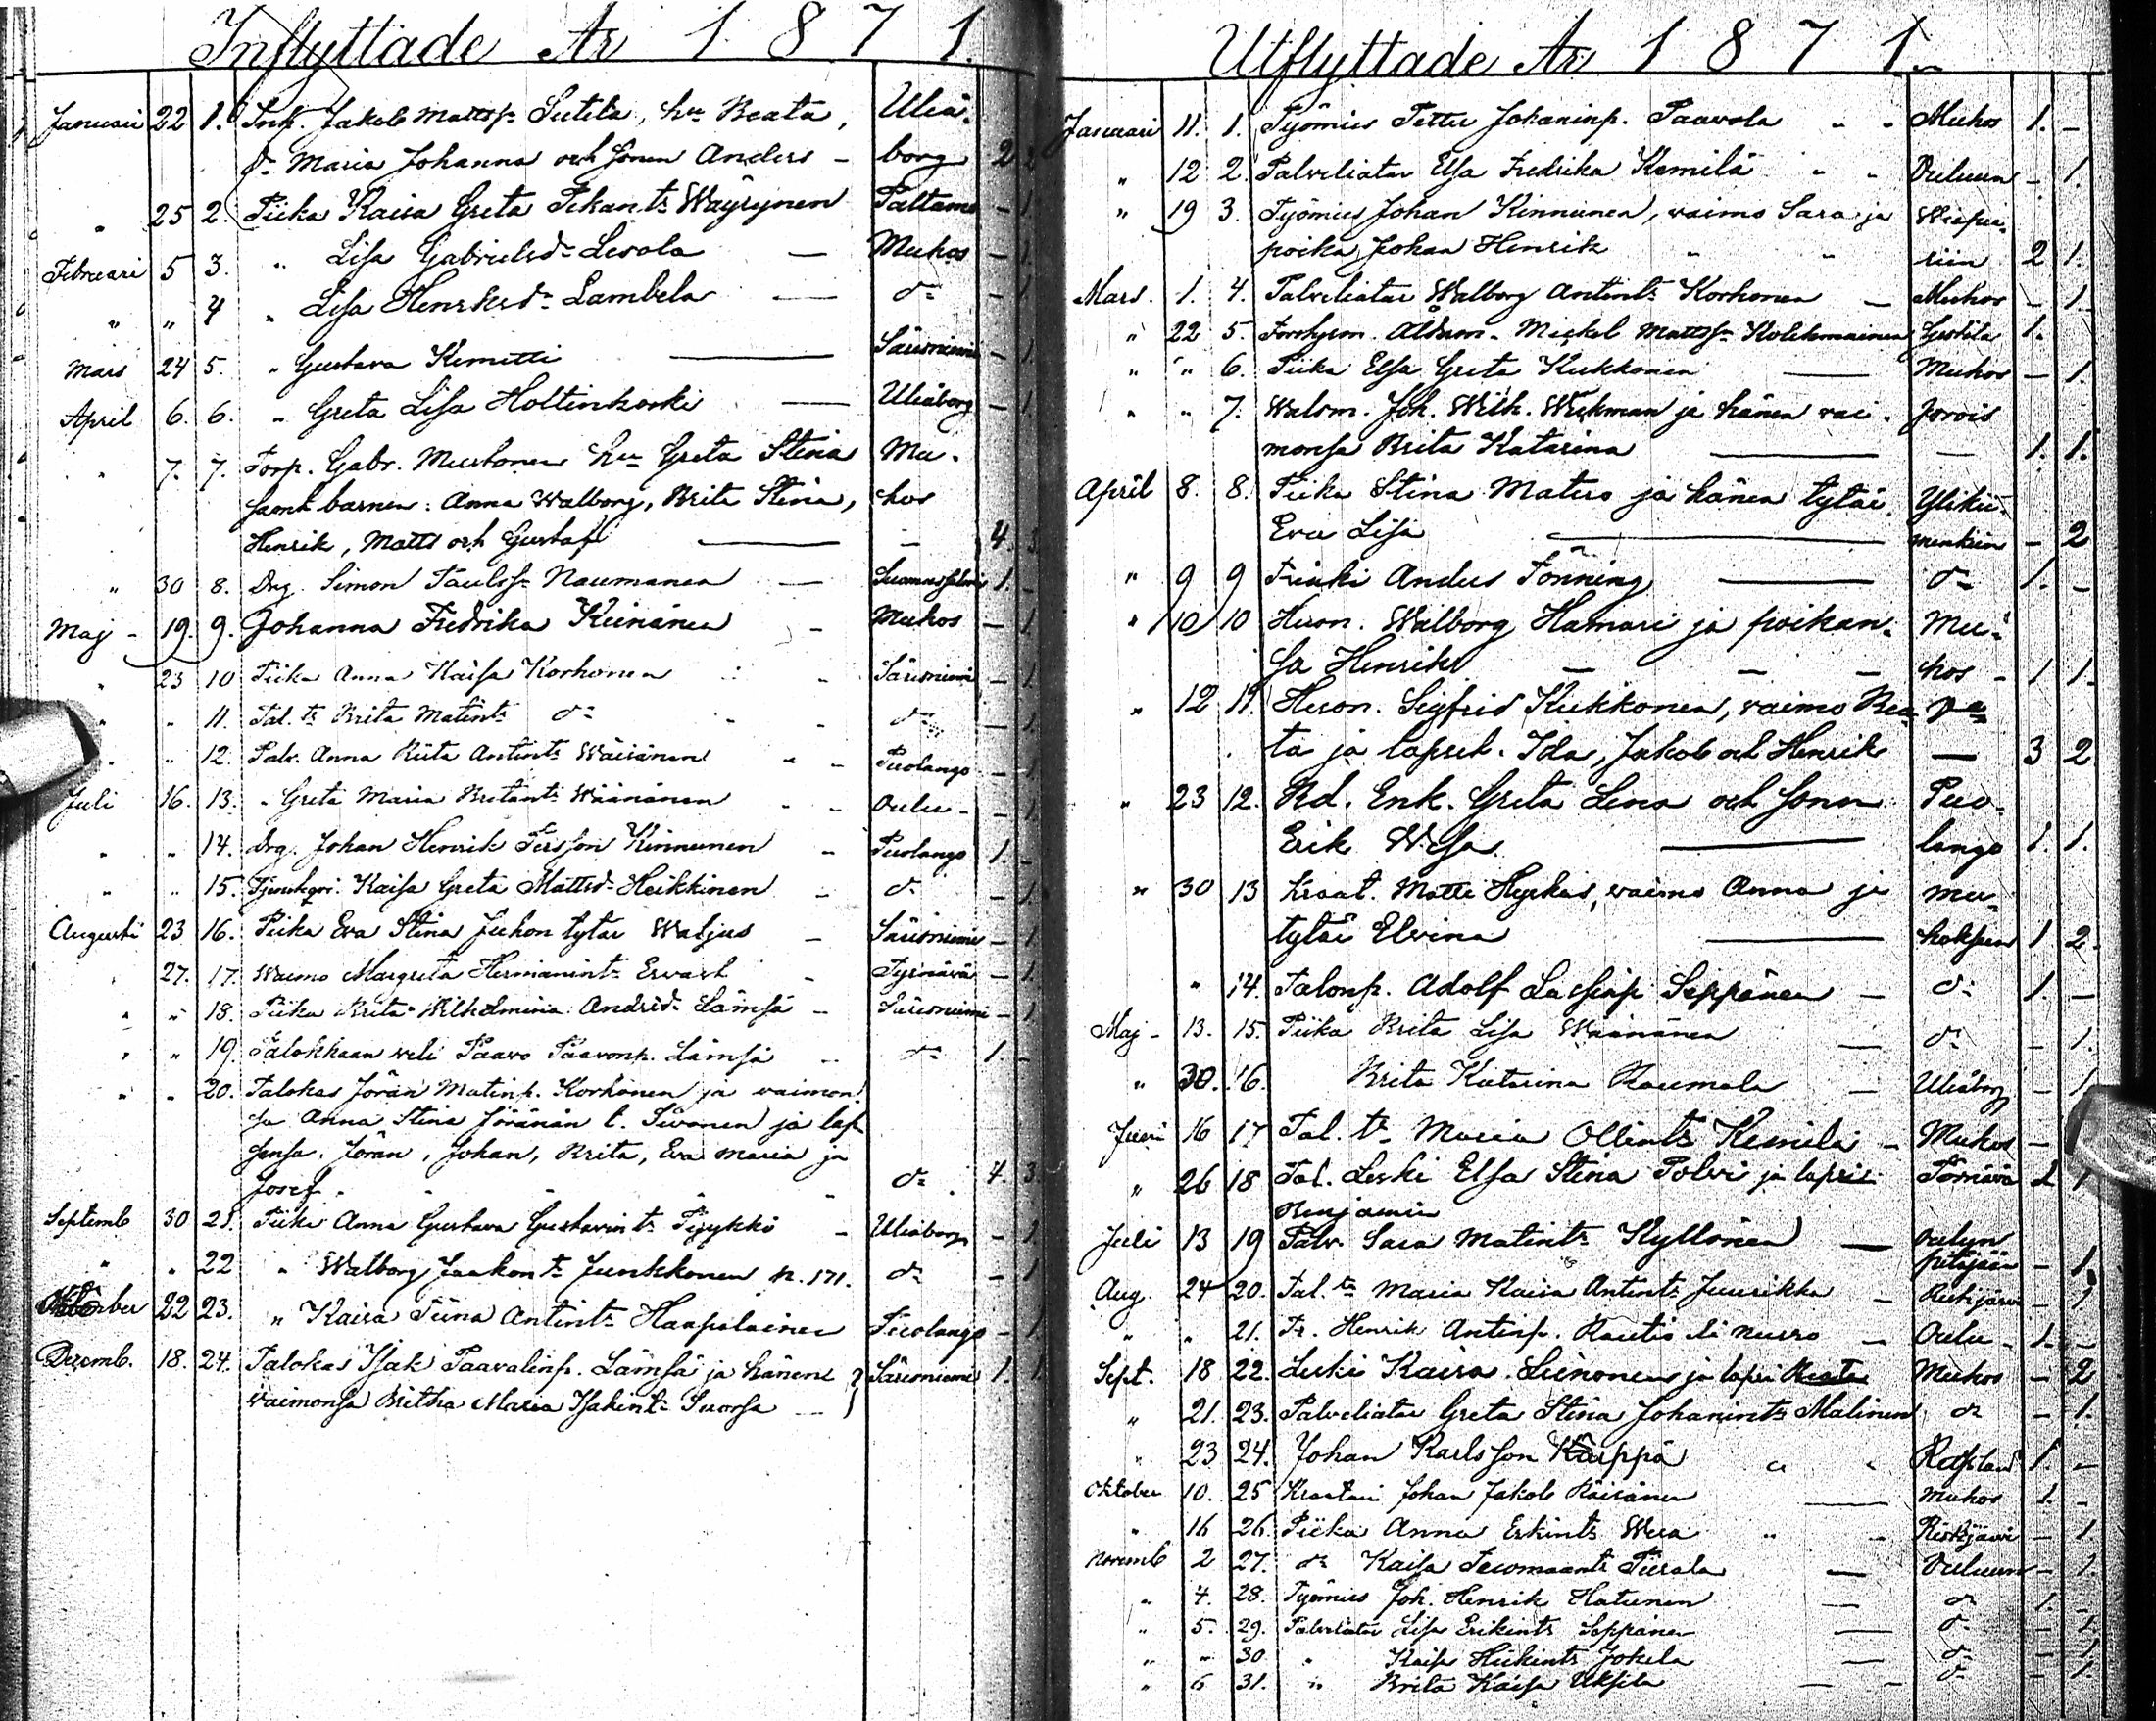 Inflyttade År 1871.
Januari 22 1. Inh. Jakob Mattss Sutela, hu Beata, Uleå-
dr Maria Johanna och sonen Anders - borg 2 2
" 25 2. Piika Kaisa Greta Pekant. Wäyrynen Paltamo - 1
Februari 5 3. " Lisa Gabrielsdr Lesola — Muhos - 1
" " 4 " Lisa Henriksdr Lambela — do - 1
Mars 24 5. " Gustava Kemitti — Säräisniemi - 1
April 6. 6. " Greta Lisa Holtinkoski — Uleåborg - 1
" 7. 7. Torp. Gabr. Mustonen hu Greta Stina Mu-
samt barnen: Anna Walborg, Brita Stina, hos
Henrik, Matts och Gustaf — - 4. 3
" 30 8. Drg. Simon Paulss Naumanen — Suomussalmi 1. -
Maj - 19. 9. Johanna Fredrika Keinänen - Muhos - 1
" 23 10 Piika Anna Kaisa Korhonen " Säräisniemi - 1
" " 11. Tal. tr Brita Matint. do " do - 1
" " 12. Palv. Anna Riita Antint. Wäisänen " - Puolango - 1
Juli 16. 13. " Greta Maria Bertint. Väänänen " Oulu - - 1
" " 14. Drg. Johan Henrik Persson Kinnunen - Puolango 1. -
" " 15. Tjensteqvi. Kaisa Greta Mattsdr Heikkinen - do - 1
Augusti 23 16. Piika Eva Stina Juhon tytär Waljus - Säräisniemi - 1
" 27. 17. Waimo Margreta Hermanint. Ervast - Tyrnävä - 1.
" " 18. Piika Brita Wilhelmina Andersdr Lämsä - Säräisniemi - 1
" " 19. Talokkaan veli Paavo Paavonp. Lämsä .. do 1. -
" " 20. Talokas Jöran Matinp. Korhonen ja vaimon-
sa Anna Stina Jöränän t. Sivonen ja lap-
sensa. Jöran, Johan, Brita, Eva Maria ja
Josef. " " do 4. 3.
Septemb 30 21. Piika Anna Gustava Gustavint. Pyykkö - Uleåborg - 1
" " 22 " Walborg Jaakont. Junkkonen N. 171. do - 1
Oktober 22 23. " Kaisa Tiina Antint. Haapalainen Puolango - 1.
Decemb. 18. 24. Talokas Isak Paavalinp. Lämsä ja hänen } Säräisniemi 1. 1.
vaimonsa Britha Maria Isakint. Suorsa — }
Utflyttade År 1871.
Januari 11. 1. Työmies Petter Johaninp. Paavola " " Muhos 1. -
" 12 2. Palveliatar Elsa Fredrika Kemilä " " Ouluun - 1.
" 19 3. Työmies Johan Kinnunen, vaimo Sara ja Wiipu-
poika Johan Henrik " " riin 2 1.
Mars. 1. 4. Palveliatar Walborg Antint. Korhonen - Muhos - 1.
" 22 5. Mickel Mattss Kolehmainen 1.
" " 6. Piika Elsa Greta Kukkonen — Muhos - 1.
" " 7. Joh. Wilh. Wickman ja hänen vai- Jorois
monsa Brita Katarina — - 1. 1.
April 8. 8. Piika Stina Matero ja hänen tytär. Ylikii-
Eva Lisa — minkiin - 2
" 9 9 Trinki Anders Fönning — do 1. -
" 10 10 Huon. Walborg Hamari ja poikan- Mu-
sa Henrik — - - hos - 1 1.
" 12 11. Huon. Sigfrid Kukkonen, vaimo Bea- do
ta ja lapset. Ida, Jakob och Henrik — 3 2
" 23 12. Bd. Enk. Greta Lena och sonen Puo-
Erik Wesa. — lango 1. 1.
" 30 13 Kraat. Matti Hyrkäs, vaimo Anna ja Mu-
tytär Elvina — hoksen 1 2.
" 14. Talonp. Adolf Lassinp Seppänen - do 1. -
Maj - 13. 15. Piika Brita Lisa Väänänen — do - 1.
" 30. 16. Brita Katarina Raumala — Uleåborg - 1
Juni 16 17 Tal. tr Maria Ollint. Kemilä - Muhos -
" 26 18 Tal. Leski Elsa Stina Polvi ja lapsi Törnävä 1 1
Benjamin
Juli 13 19 Palv. Sara Matint. Kyllönen — Oulun
pitäjään - 1.
Aug. 24 20. Tal. tr Maria Kaisa Antint. Juurikka - Reisjärvi - 1
" " 21. Tr. Henrik Antinp. Rautio - Oulu - 1. -
Sept. 18 22. Leski Kaisa Leinonen ja lapsi Muhos - 2
" 21. 23. Palveliatar Greta Stina Johanint. Malinen do - 1.
" 23 24. Johan Karlsson Karppa " " Ryssland 1. -
Oktober 10. 25 Kraatari Johan Jakob Räisänen — Muhos 1. -
" 16 26. Piika Anna Erkint. Wesa " " Ristijärvi - 1
Novemb 2 27. do Kaisa Tuomaant. Tiirala — Ouluun - 1.
" 4. 28. Työmies Joh. Henrik Hatunen — do 1. -
" 5. 29. Palveliatar Lisa Erikint. Seppänen — do - 1.
" " 30 " Kaisa Heikint. Jokela — do - 1.
" 6 31. " Brita Kaisa Uksila — do - 1.